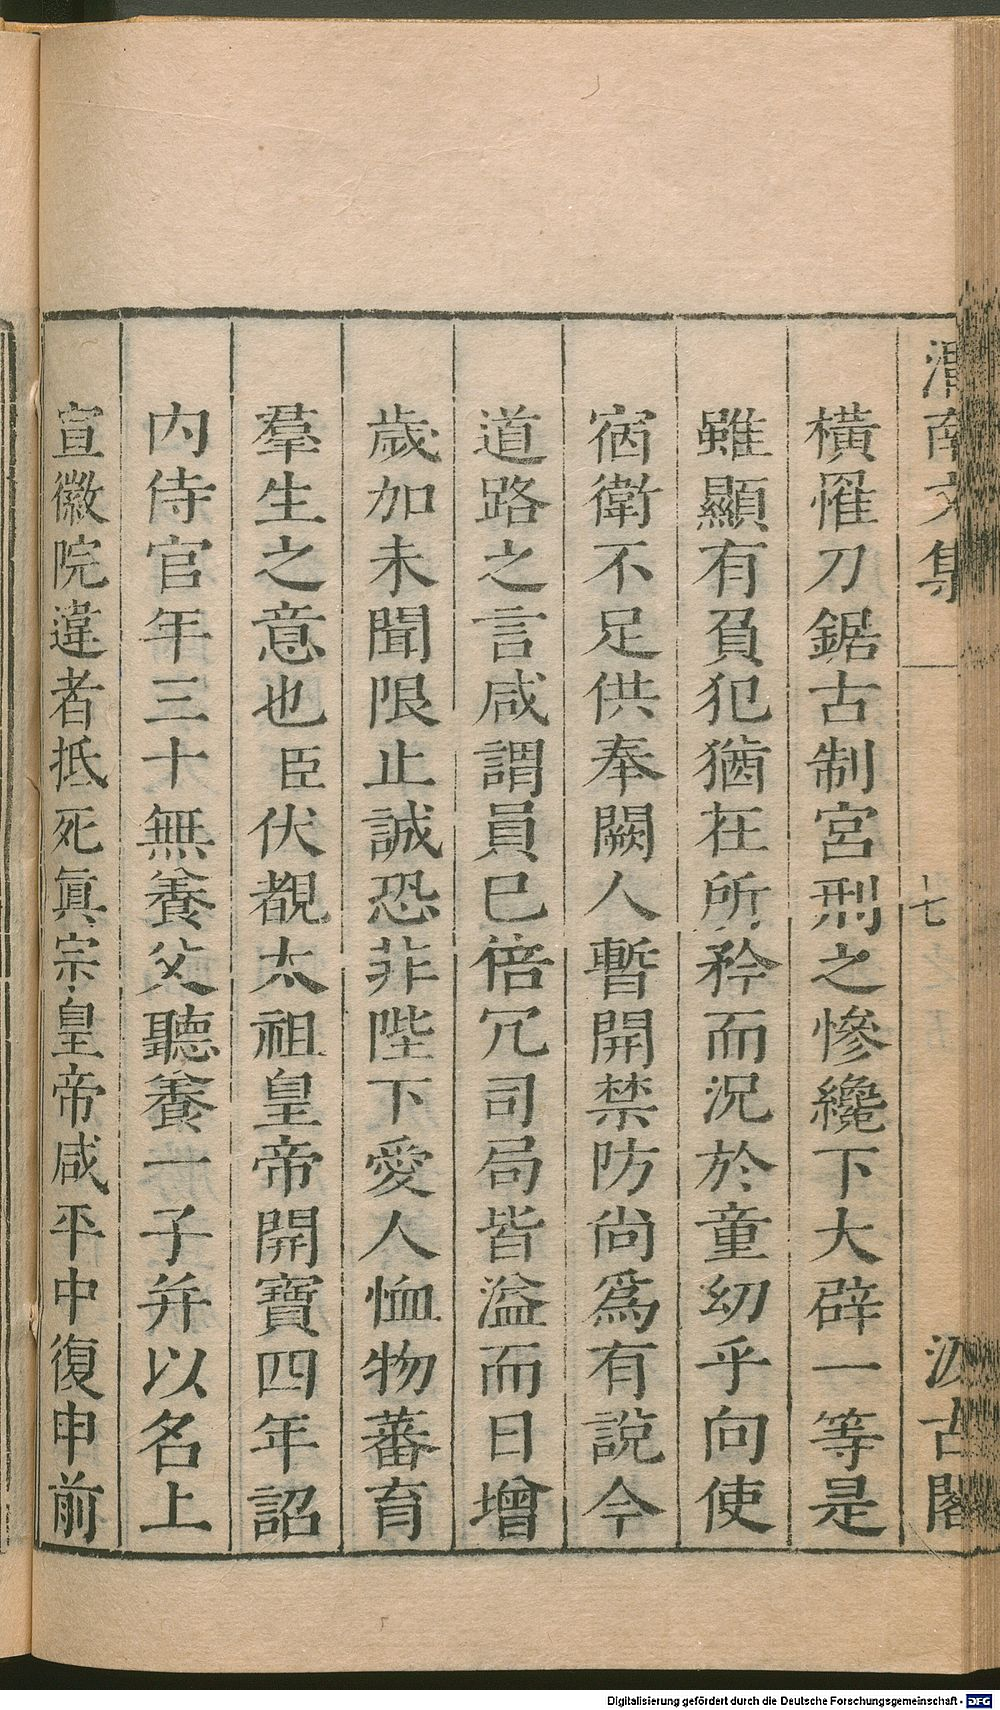 渭南文集 七 汲古閣
橫罹刀鋸古制宮刑之慘纔下大辟一等是
雖顯有負犯猶在所矜而況於童幼乎向使
宿衛不足供奉闕人暫開禁防尚爲有說今
道路之言咸謂員已倍冗司局皆溢而日增
歲加未聞限止誠恐非陛下愛人恤物蕃育
羣生之意也臣伏覩太祖皇帝開寶四年詔
內侍官年三十無養父聽養一子并以名上
宣徽院違者抵死眞宗皇帝咸平中復申前
Digitalisierung gefördert durch die Deutsche Forschungsgemeinschaft - DFG